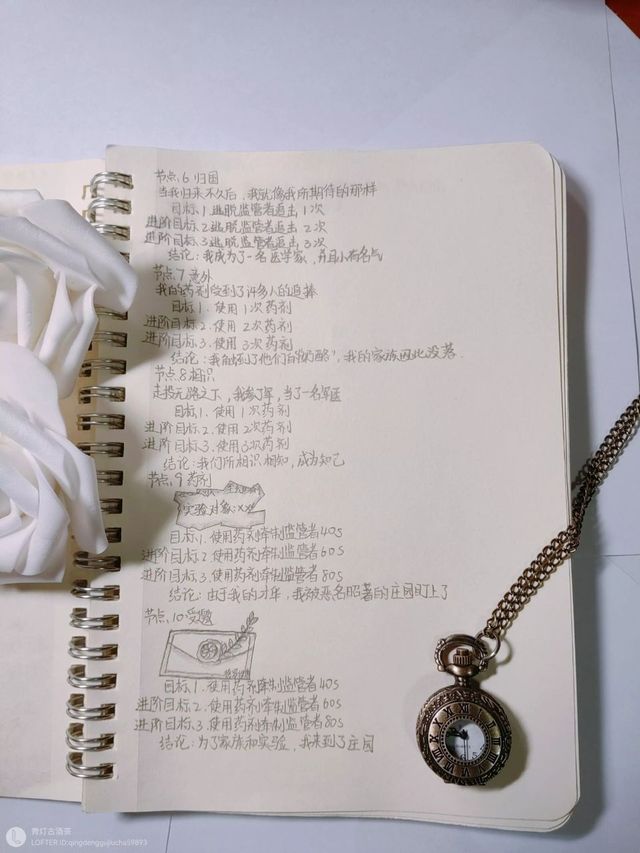 节点.6 归国
当我归来不久后，我就像我所期待的那样
目标.1.逃脱监管者追击1次
进阶目标.2.逃脱监管者追击2次
进阶目标.3.逃脱监管者追击3次
结论：我成为了一名医学家，并且小有名气
节点.7 意外
我的药剂受到了许多人的追捧
目标1.使用1次药剂
进阶目标.2.使用2次药剂
进阶目标.3.使用3次药剂
结论：我触到了他们的"奶酪"，我的家族因此没落.
节点.8相识
走投无路之下，我参了军，当了一名军医
目标1.使用1次药剂
进阶目标2.使用2次药剂
进阶目标3.使用3次药剂
结论：我们所相识相知，成为知己
节点.9药剂
实验对象：xx
目标1.使用药剂牵制监管者40s
进阶目标2.使用药剂牵制监管者60s
进阶目标3.使用药剂牵制监管者80s
结论：由于我的才华，我被恶名昭著的庄园盯上了
节点.10受邀
目标.1.使用药剂牵制监管者40s
进阶目标2.使用药剂牵制监管者60s
进阶目标.3.使用药剂牵制监管者80s
结论：为了家族和实验，我来到了庄园
青灯古酒茶
LOFTER ID:qingdenggujiucha59893